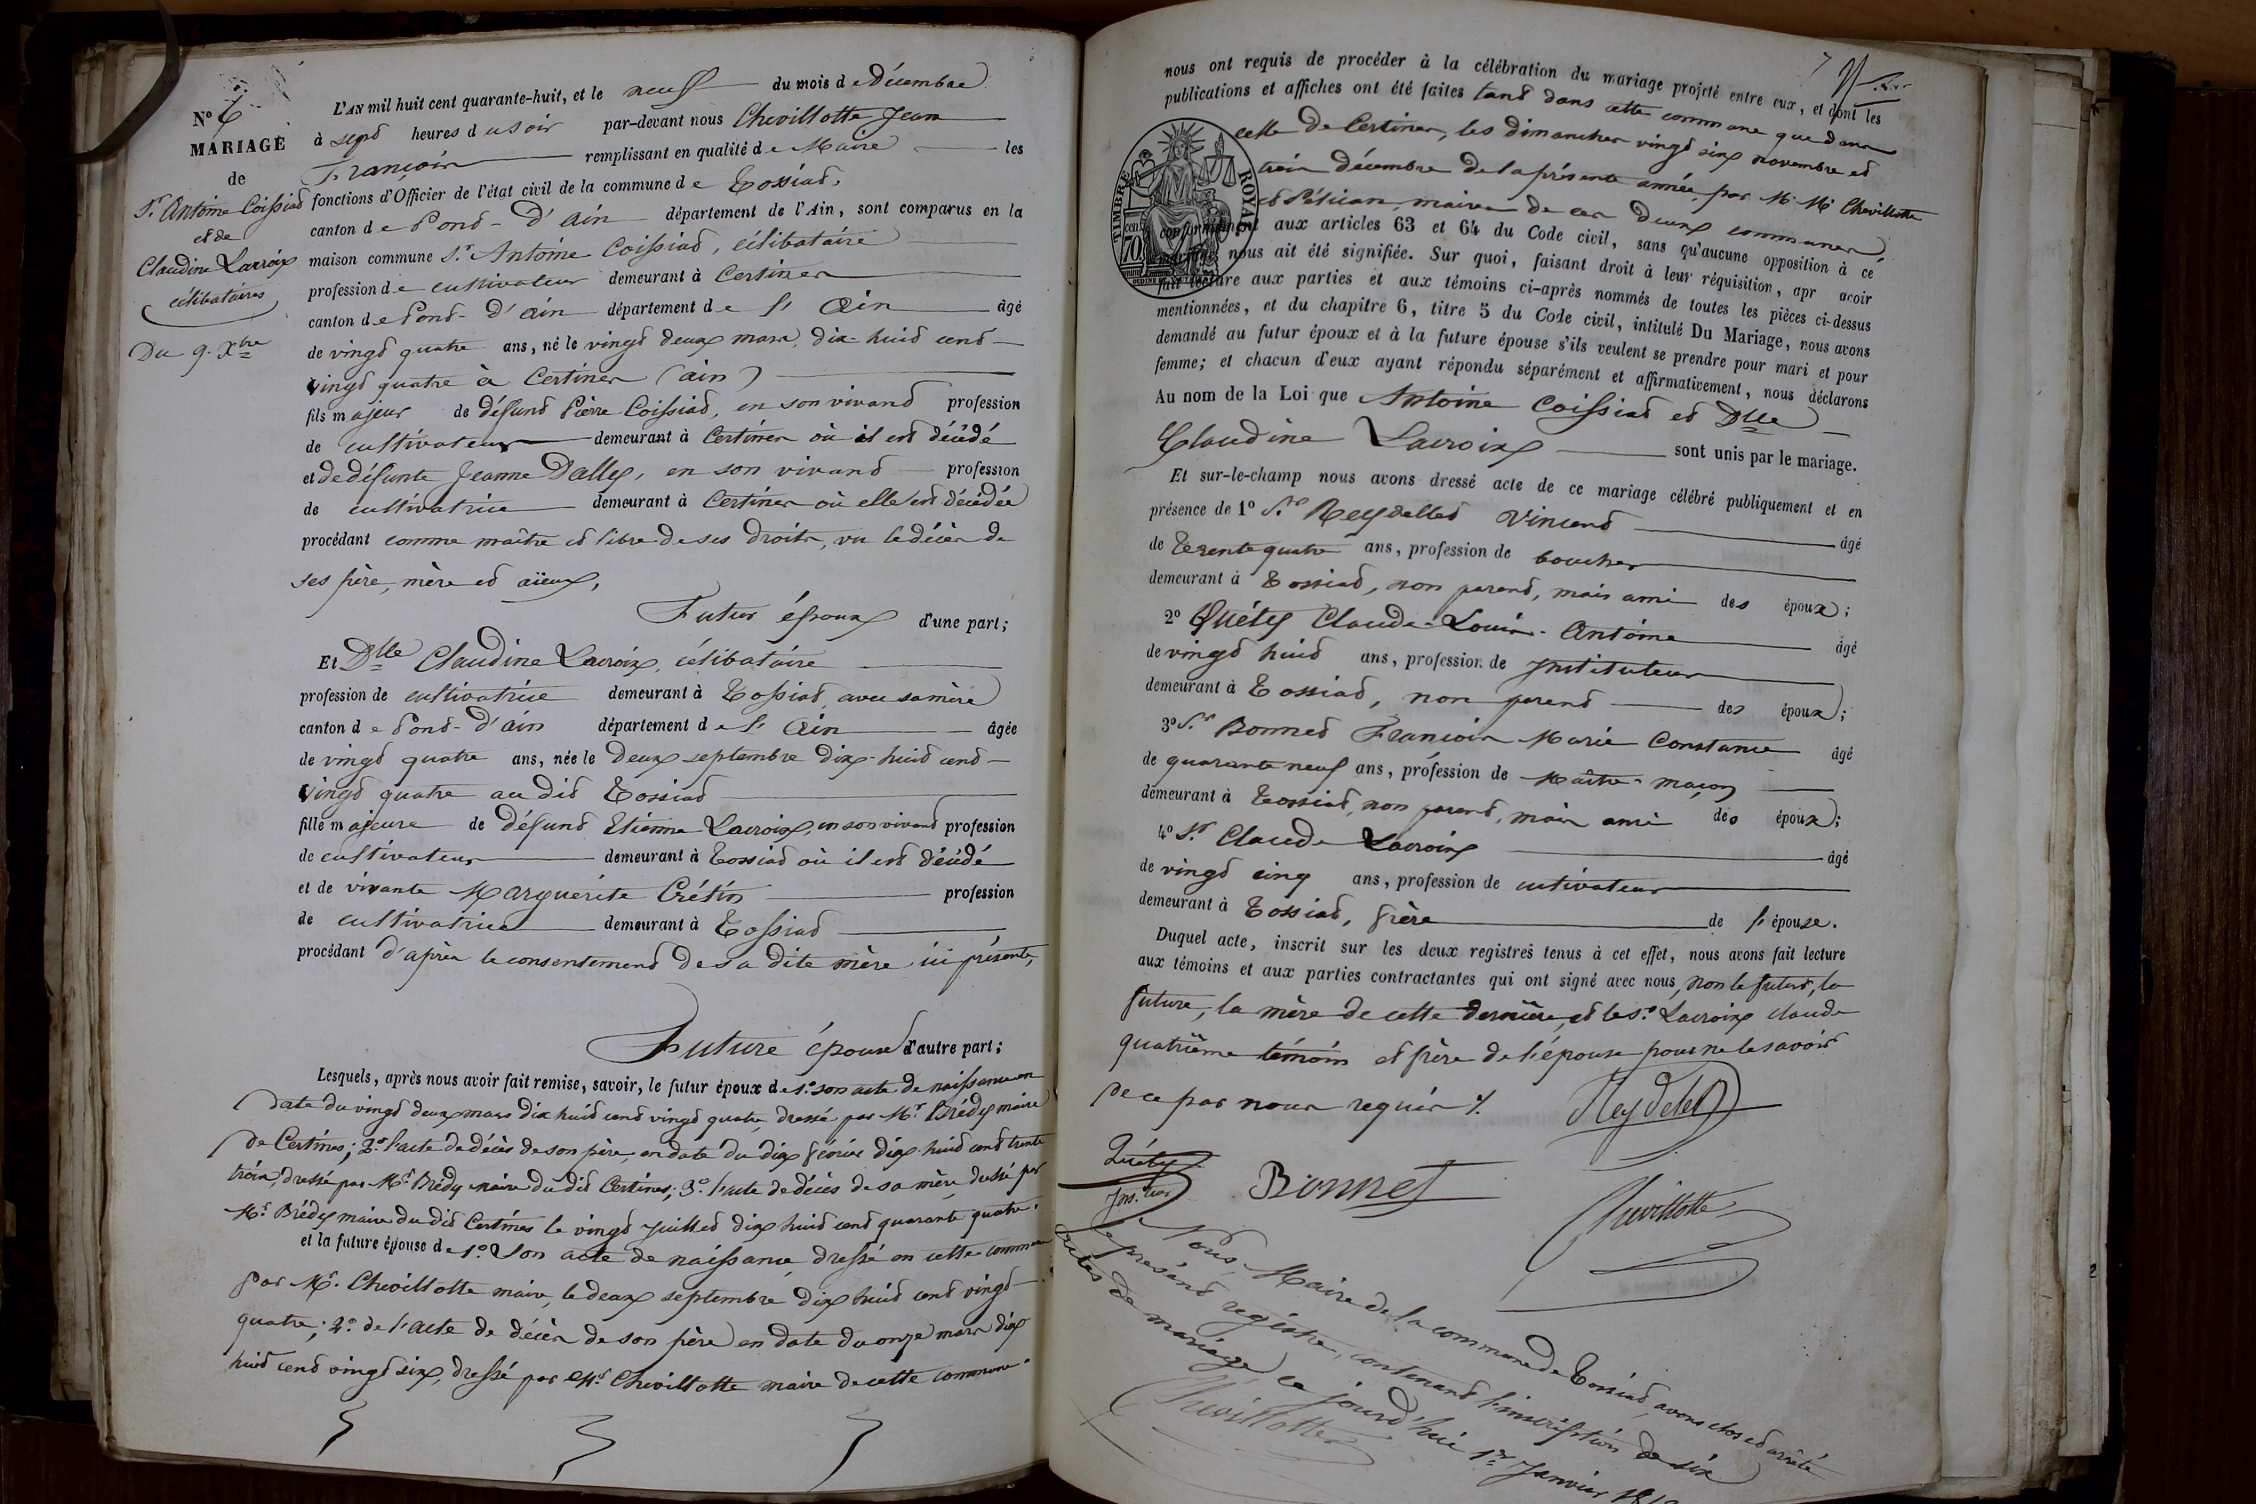 N° 6
MARIAGE
de
Sr Antoine Coissiad
et de
Claudine Lacroix
célibataires
Du 9. Xbre
L'AN mil huit cent quarante-huit, et le neuf du mois de Décembre
à sept heures du soir par-devant nous Chevillotte Jean
François remplissant en qualité de Maire les
fonctions d'Officier de l'état civil de la commune de Tossiad,
canton de Pond-d'ain département de l'Ain, sont comparus en la
maison commune Sr Antoine Coissiad, célibataire
profession de cultivateur demeurant à Certines
canton de Pond-d'ain département de l'Ain âgé
de vingd quatre ans, né le vingd deux mars, dix-huid cend
vingd quatre à Certines (ain)
fils majeur de défund Pierre Coissiad, en son vivand profession
de cultivateur demeurant à Certines où il est décédé
et de défunte Jeanne Dalley, en son vivand profession
de cultivatrice demeurant à Certines où elle est décédée
procédant comme maître et libre de ses droits, vu le décès de
ses père, mère ed aïeux,
Futur époux d'une part;
Et Dlle Claudine Lacroix, célibataire
profession de cultivatrice demeurant à Tossiad, avec sa mère
canton de Pond-d'ain département de l'Ain âgée
de vingd quatre ans, née le deux septembre dix-huid cend
vingd quatre au did Tossiad
fille majeure de défund Etienne Lacroix, en son vivand profession
de cultivateur demeurant à Tossiad où il est décédé
et de vivante Marguerite Crétin profession
de cultivatrice demeurant à Tossiad
procédant d'après le consentemend de sa dite mère ici présente,
Future épouse d'autre part;
Lesquels, après nous avoir fait remise, savoir, le futur époux de 1° son acte de naissance en
date du vingd deux mars dix huid cend vingd quatre, dressé par Mr Brédy maire
de Certines; 2° l'acte de décès de son père, en date du dix février dix-huid cend trente
trois, dressé par Mr Brédy maire du did Certines; 3° l'acte de décès de sa mère, dressé par
Mr Brédy maire du did Certines le vingd Juilled dix huid cend quarante quatre.
et la future épouse de 1° Son acte de naissance, dressé en cette commune
par Mr. Chevillotte maire, le deux septembre dix huid cend vingd
quatre; 2° de l'acte de décès de son père en date du onze mars dix
huid cend vingd six, dressé par Mr Chevillotte maire de cette commune.
nous ont requis de procéder à la célébration du mariage projeté entre eux, et dont les
publications et affiches ont été faites tand dans cette commune que dans
celle de Certines, les dimanches vingd six novembre ed
trois décembre de la présente année, par M. M. Chevillotte
maires de ces deux communes
conformément aux articles 63 et 64 du Code civil, sans qu'aucune opposition à ce
mariage nous ait été signifiée. Sur quoi, faisant droit à leur réquisition, apr avoir
fait lecture aux parties et aux témoins ci-après nommés de toutes les pièces ci-dessus
mentionnées, et du chapitre 6, titre 5 du Code civil, intitulé Du Mariage, nous avons
demandé au futur époux et à la future épouse s'ils veulent se prendre pour mari et pour
femme; et chacun d'eux ayant répondu séparément et affirmativement, nous déclarons
Au nom de la Loi que Antoine Coissiad ed Dlle
Claudine Lacroix sont unis par le mariage.
Et sur-le-champ nous avons dressé acte de ce mariage célébré publiquement et en
présence de 1° Sr Reydelled Vincend âgé
de Trente quatre ans, profession de boucher
demeurant à Tossiad, non parend, mais ami des époux;
2° Quéty Claude-Louis-Antoine âgé
de vingd huid ans, profession de Instituteur
demeurant à Tossiad, non parend des époux;
3° Sr Bonned François Marie Constance âgé
de quarante neuf ans, profession de Maître-maçon
demeurant à Tossiad, non parend, mais ami des époux;
4° Sr Claude Lacroix âgé
de vingd cinq ans, profession de cultivateur
demeurant à Tossiad, frère de l'épouse.
Duquel acte, inscrit sur les deux registres tenus à cet effet, nous avons fait lecture
aux témoins et aux parties contractantes qui ont signé avec nous, non le futur, la
future, la mère de cette dernière, ed le Sr Lacroix claude
quatrième témoin et frère de l'épouse pour ne le savoir
de ce par nous requis.
Reydelet
Quéty
Bonnet
Chevillotte
Nous, Maire de la commune de Tossiad, avons clos ed arrêté
le présend registre, contenand l'inscription de six
actes de mariage, ce jourd'hui 1er Janvier
Chevillotte
TIMBRE ROYAL
70